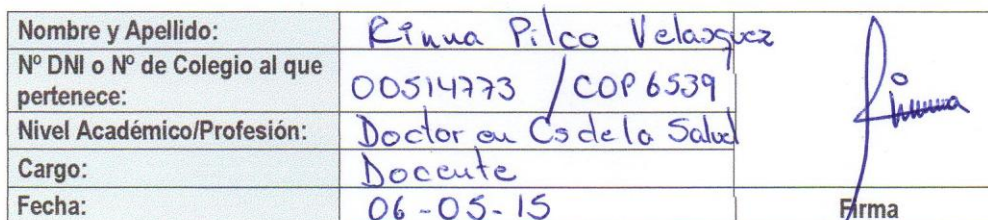 Nombre y Apellido: Rinna Pilco Velasquez
Nº DNI o Nº de Colegio al que pertenece: 00514773 / COP 6539
Nivel Académico/Profesión: Doctor en Cs de la Salud
Cargo: Docente
Fecha: 06-05-15
Rinna
Firma